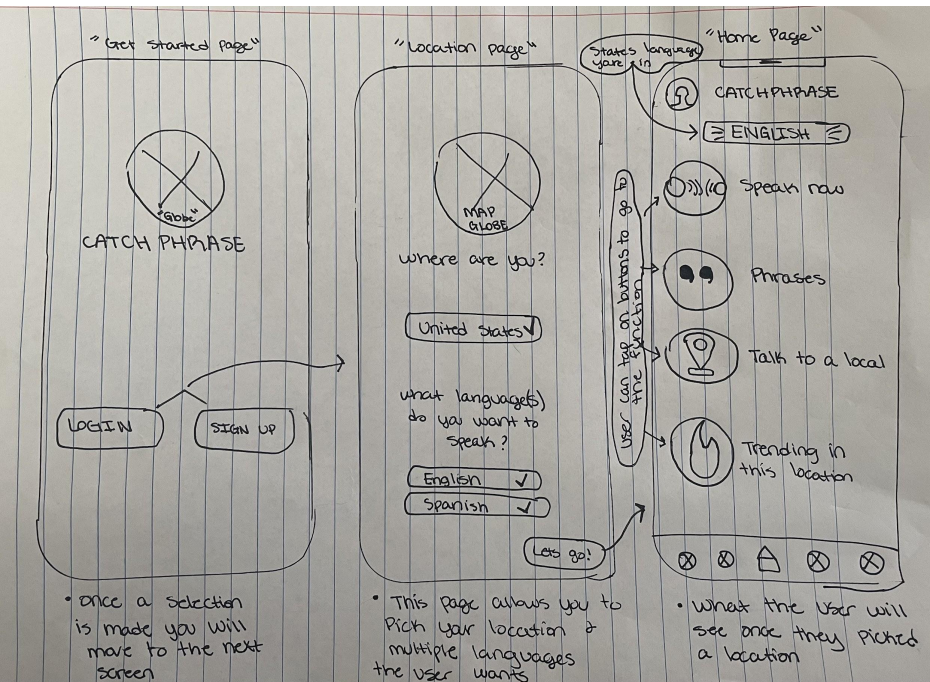 "Get started page"
"Globe"
CATCH PHRASE
LOGIN
SIGN UP
• once a selection
is made you will
move to the next
screen
"Location page"
MAP
GLOBE
where are you?
United States
what language(s)
do you want to
speak?
English
Spanish
Lets go!
• This page allows you to
Pick your location &
multiple languages
the user wants
"Home Page"
States language
you're in
CATCHPHRASE
ENGLISH
user can tap on buttons to go to
the function
Speak now
Phrases
Talk to a local
Trending in
this location
• what the user will
see once they picked
a location